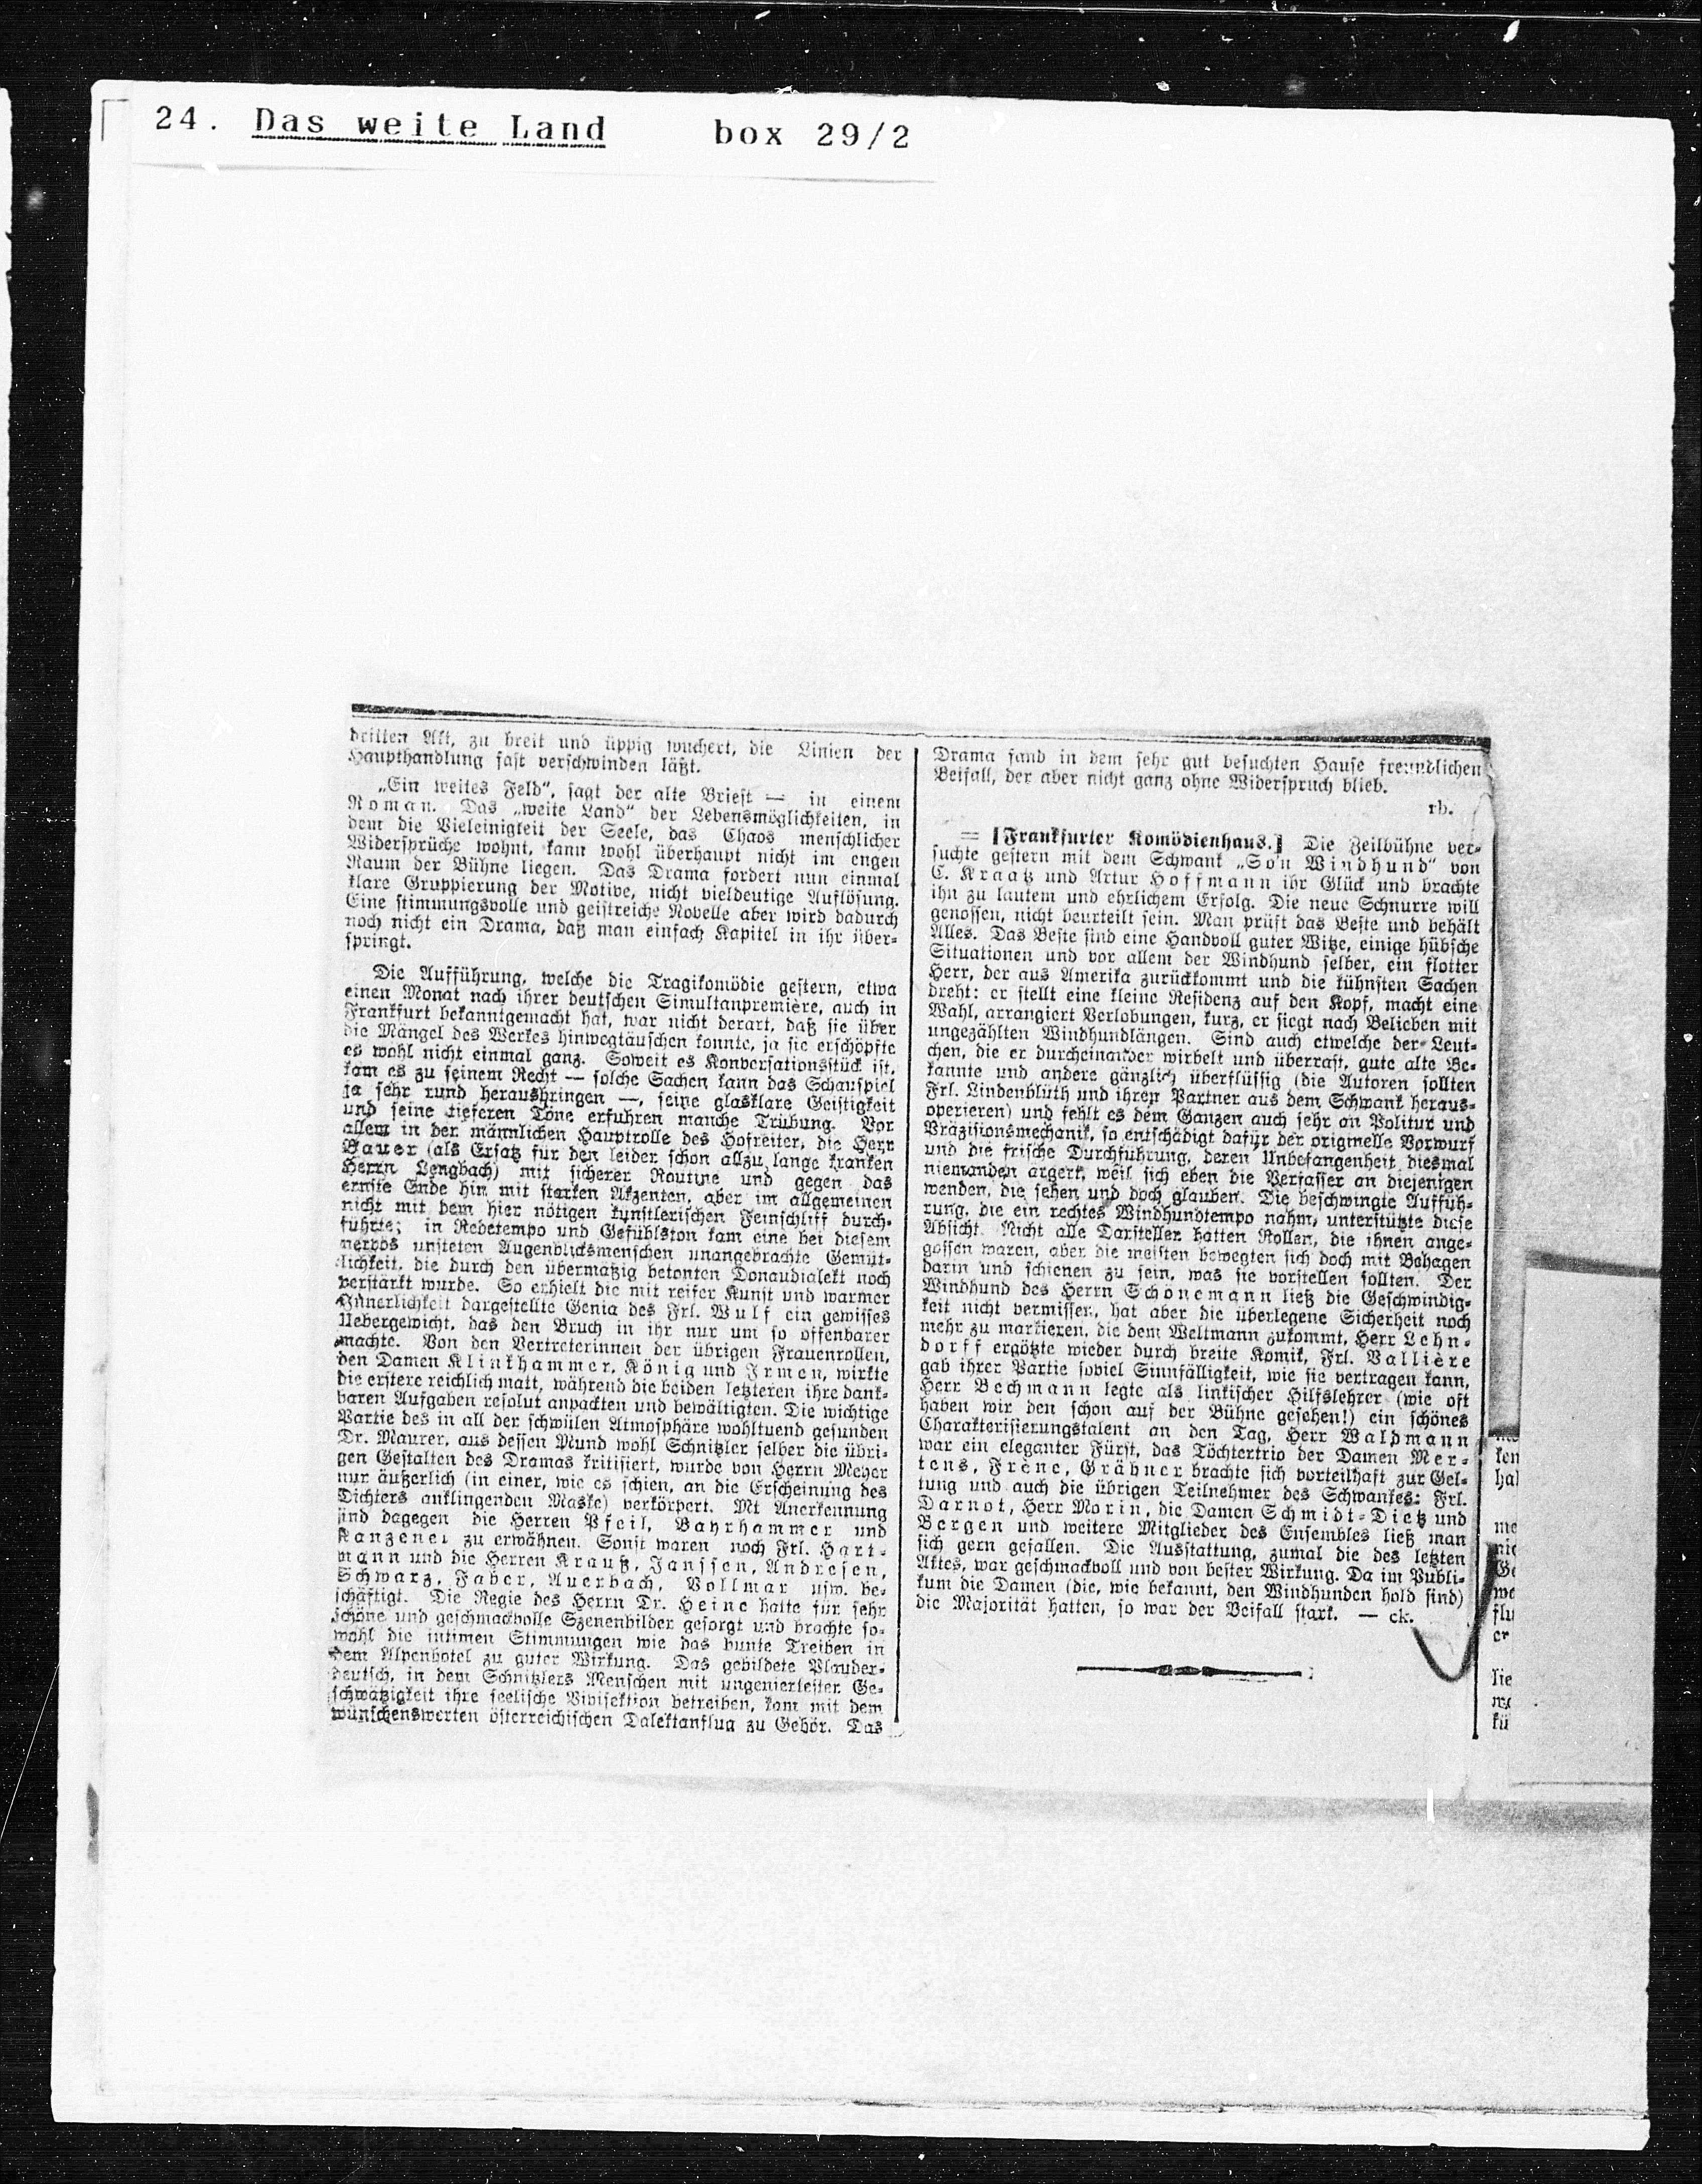 24. Das weite Land box 29/2
dritten Akt, zu breit und üppig wuchert, die Linien der
Haupthandlung fast verschwinden läßt.
„Ein weites Feld“, sagt der alte Briest — in einem
Roman. Das „weite Land“ der Lebensmöglichkeiten, in
dem die Vieleinigkeit der Seele, das Chaos menschlicher
Widersprüche wohnt, kann wohl überhaupt nicht im engen
Raum der Bühne liegen. Das Drama fordert nun einmal
klare Gruppierung der Motive, nicht vieldeutige Auflösung.
Eine stimmungsvolle und geistreiche Novelle aber wird dadurch
noch nicht ein Drama, daß man einfach Kapitel in ihr über-
springt.
Die Aufführung, welche die Tragikomödie gestern, etwa
einen Monat nach ihrer deutschen Simultanpremière, auch in
Frankfurt bekanntgemacht hat, war nicht derart, daß sie über
die Mängel des Werkes hinwegtäuschen konnte, ja sie erschöpfte
es wohl nicht einmal ganz. Soweit es Konversationsstück ist,
kam es zu seinem Recht — solche Sachen kann das Schauspiel
ja sehr rund herausbringen —, seine glasklare Geistigkeit
und seine tieferen Töne erfuhren manche Trübung. Vor
allem in der männlichen Hauptrolle des Hofreiter, die Herr
Bauer (als Ersatz für den leider schon allzu lange kranken
Herrn Lengbach) mit sicherer Routine und gegen das
ernste Ende hin mit starken Akzenten, aber im allgemeinen
nicht mit dem hier nötigen künstlerischen Feinschliff durch-
führte; in Redetempo und Gefühlston kam eine bei diesem
nervös unsteten Augenblicksmenschen unangebrachte Gemüt-
lichkeit, die durch den übermäßig betonten Donaudialekt noch
verstärkt wurde. So erhielt die mit reifer Kunst und warmer
Innerlichkeit dargestellte Genia des Frl. Wulf ein gewisses
Uebergewicht, das den Bruch in ihr nur um so offenbarer
machte. Von den Vertreterinnen der übrigen Frauenrollen,
den Damen Klinkhammer, König und Irmen, wirkte
die erstere reichlich matt, während die beiden letzteren ihre dank-
baren Aufgaben resolut anpackten und bewältigten. Die wichtige
Partie des in all der schwülen Atmosphäre wohltuend gesunden
Dr. Maurer, aus dessen Mund wohl Schnitzler selber die übri-
gen Gestalten des Dramas kritisiert, wurde von Herrn Meyer
nur äußerlich (in einer, wie es schien, an die Erscheinung des
Dichters anklingenden Maske) verkörpert. Mt Anerkennung
sind dagegen die Herren Pfeil, Bayrhammer und
Ranzenei zu erwähnen. Sonst waren noch Frl. Hart-
mann und die Herren Krauß, Janssen, Andresen,
Schwarz, Faber, Auerbach, Vollmar usw. be-
schäftigt. Die Regie des Herrn Dr. Heine hatte für sehr
schöne und geschmackvolle Szenenbilder gesorgt und brachte so-
wohl die intimen Stimmungen wie das bunte Treiben in
dem Alpenhotel zu guter Wirkung. Das gebildete Plauder-
deutsch, in dem Schnitzlers Menschen mit ungenierlester Ge-
schwätzigkeit ihre seelische Vivisektion betreiben, kam mit dem
wünschenswerten österreichischen Dalektanflug zu Gehör. Das
Drama fand in dem sehr gut besuchten Hause freundlichen
Beifall, der aber nicht ganz ohne Widerspruch blieb.
rb.
= [Frankfurter Komödienhaus.] Die Zeilbühne ver-
suchte gestern mit dem Schwank „So'n Windhund“ von
C. Kraatz und Artur Hoffmann ihr Glück und brachte
ihn zu lautem und ehrlichem Erfolg. Die neue Schnurre will
genossen, nicht beurteilt sein. Man prüft das Beste und behält
Alles. Das Beste sind eine Handvoll guter Witze, einige hübsche
Situationen und vor allem der Windhund selber, ein flotter
Herr, der aus Amerika zurückkommt und die kühnsten Sachen
dreht: er stellt eine kleine Residenz auf den Kopf, macht eine
Wahl, arrangiert Verlobungen, kurz, er siegt nach Belieben mit
ungezählten Windhundlängen. Sind auch etwelche der Leut-
chen, die er durcheinander wirbelt und überrast, gute alte Be-
kannte und andere gänzlich überflüssig (die Autoren sollten
Frl. Lindenblüth und ihren Partner aus dem Schwank heraus-
operieren) und fehlt es dem Ganzen auch sehr an Politur und
Präzisionsmechanik, so entschädigt dafür der originelle Vorwurf
und die frische Durchführung, deren Unbefangenheit diesmal
niemanden ärgert, weil sich eben die Verfasser an diejenigen
wenden, die sehen und doch glauben. Die beschwingte Auffüh-
rung, die ein rechtes Windhundtempo nahm, unterstützte diese
Absicht. Nicht alle Darsteller hatten Rollen, die ihnen ange-
gossen waren, aber die meisten bewegten sich doch mit Behagen
darin und schienen zu sein, was sie vorstellen sollten. Der
Windhund des Herrn Schönemann ließ die Geschwindig-
keit nicht vermissen, hat aber die überlegene Sicherheit noch
mehr zu markieren, die dem Weltmann zukommt, Herr Lehn-
dorff ergötzte wieder durch breite Komik, Frl. Vallière
gab ihrer Partie soviel Sinnfälligkeit, wie sie vertragen kann,
Herr Bechmann legte als linkischer Hilfslehrer (wie oft
haben wir den schon auf der Bühne gesehen!) ein schönes
Charakterisierungstalent an den Tag, Herr Waldmann
war ein eleganter Fürst, das Töchtertrio der Damen Mer-
tens, Frène, Grähner brachte sich vorteilhaft zur Gel-
tung und auch die übrigen Teilnehmer des Schwankes: Frl.
Darnot, Herr Morin, die Damen Schmidt-Dietz und
Bergen und weitere Mitglieder des Ensembles ließ man
sich gern gefallen. Die Ausstattung, zumal die des letzten
Aktes, war geschmackvoll und von bester Wirkung. Da im Publi-
kum die Damen (die, wie bekannt, den Windhunden hold sind)
die Majorität hatten, so war der Beifall stark. — ck.
ken
hal
me
flu
er
lie
kü